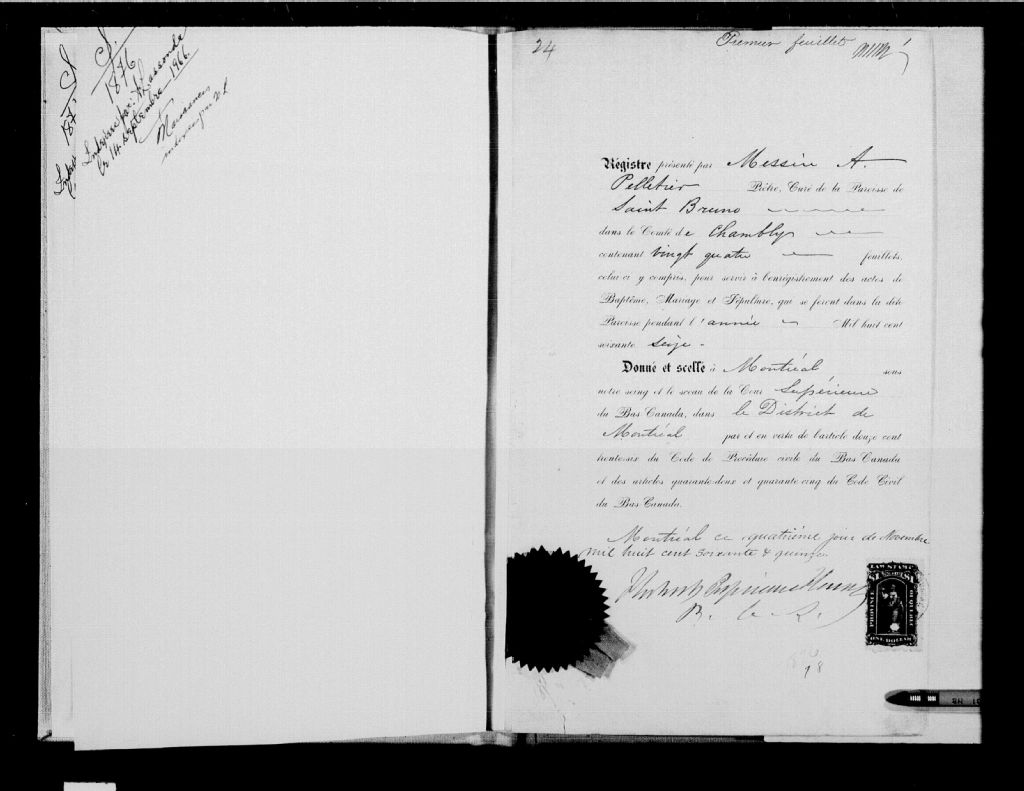 1876
Indexé par: A Lassonde
le 14 septembre 1966.
Naissances
24
Premier feuillet
Régistre présenté par Messire A.
Pelletier Prêtre, Curé de la Paroisse de
Saint Bruno
dans le Comté de Chambly
contenant vingt quatre feuillets,
celui-ci y compris, pour servir à l'enrégistrement des actes de
Baptême, Mariage et Sépulture, qui se feront dans la dite
Paroisse pendant l'année Mil huit cent
soixante seize.
Donné et scellé à Montréal sous
notre seing et le sceau de la Cour Supérieure
du Bas-Canada, dans le District de
Montréal par et en vertu de l'article douze cent
trente-six du Code de Procédure civile du Bas-Canada
et des articles quarante-deux et quarante-cinq du Code Civil
du Bas-Canada.
Montréal ce quatrième jour de Novembre
mil huit cent soixante & quinze
LAW STAMP
$1 $1
PROVINCE OF QUEBEC
ONE DOLLAR